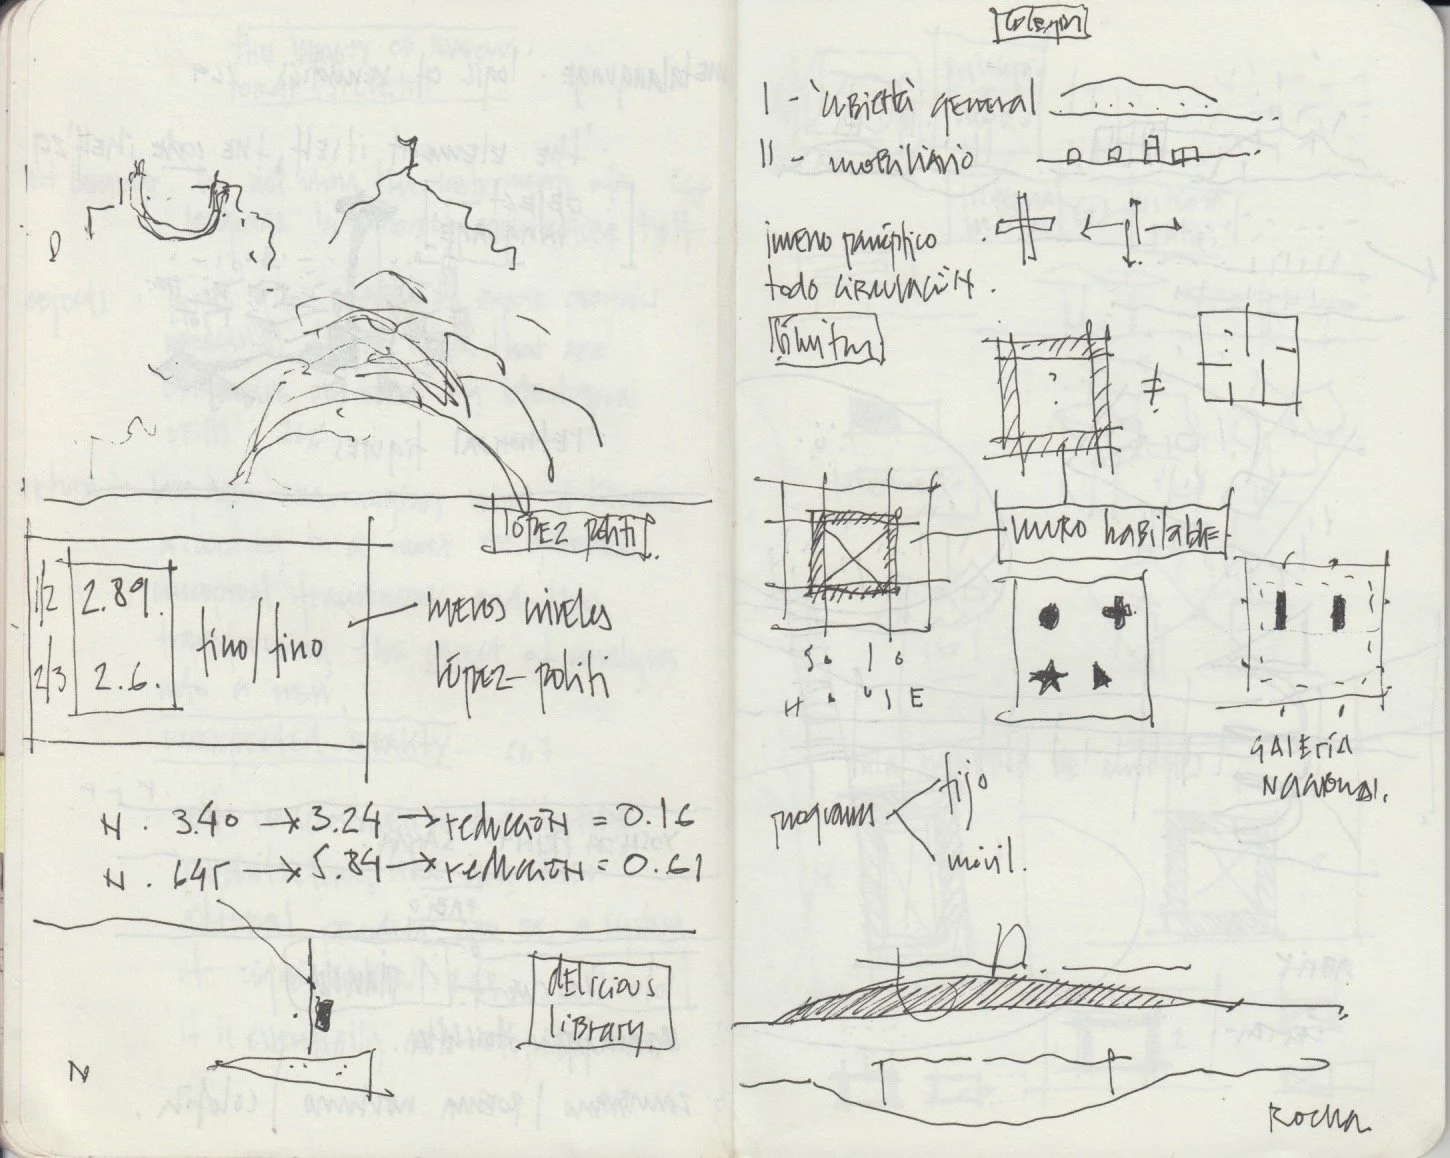 D
LÓPEZ politi.
1/2 2.89.
2/3 2.6.
fino/fino
menos niveles
LÓPEZ-politi
N. 3.40 → 3.24 → reducción = 0.16
N. 645 → 5.84 → reducción = 0.61
delicious
library.
N
I - cubierta general
II - mobiliario
panóptico
todo circulación.
?
≠
muro habitable
H E
GALERÍA
NACIONAL.
programas
fijo
móvil.
Rocha